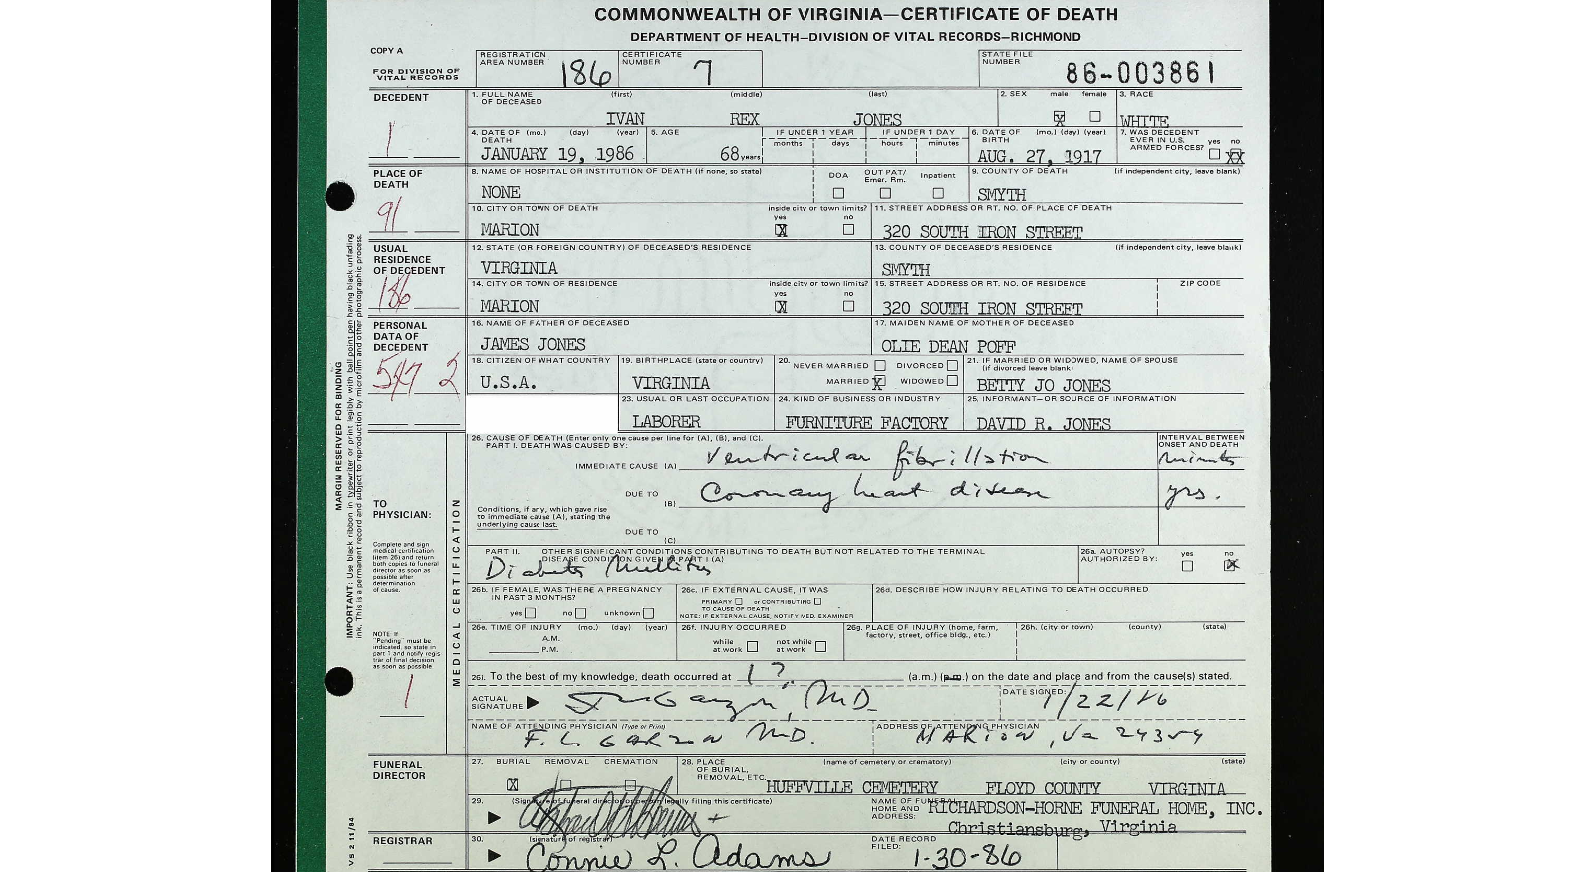 COMMONWEALTH OF VIRGINIA—CERTIFICATE OF DEATH
DEPARTMENT OF HEALTH—DIVISION OF VITAL RECORDS—RICHMOND
COPY A
FOR DIVISION OF VITAL RECORDS
REGISTRATION AREA NUMBER 186 CERTIFICATE NUMBER 7 STATE FILE NUMBER 86-003861
DECEDENT
1. FULL NAME OF DECEASED (first) (middle) (last) 2. SEX male female 3. RACE
IVAN REX JONES X WHITE
4. DATE OF DEATH (mo.) (day) (year) 5. AGE IF UNDER 1 YEAR months days IF UNDER 1 DAY hours minutes 6. DATE OF BIRTH (mo.) (day) (year) 7. WAS DECEDENT EVER IN U.S. ARMED FORCES? yes no
JANUARY 19, 1986 68 years AUG. 27, 1917 XX
PLACE OF DEATH
91
8. NAME OF HOSPITAL OR INSTITUTION OF DEATH (if none, so state) DOA OUT PAT/ Emer. Rm. Inpatient 9. COUNTY OF DEATH (if independent city, leave blank)
NONE SMYTH
10. CITY OR TOWN OF DEATH inside city or town limits? yes no 11. STREET ADDRESS OR RT. NO. OF PLACE OF DEATH
MARION X 320 SOUTH IRON STREET
USUAL RESIDENCE OF DECEDENT
186
12. STATE (OR FOREIGN COUNTRY) OF DECEASED'S RESIDENCE 13. COUNTY OF DECEASED'S RESIDENCE (if independent city, leave blank)
VIRGINIA SMYTH
14. CITY OR TOWN OF RESIDENCE inside city or town limits? yes no 15. STREET ADDRESS OR RT. NO. OF RESIDENCE ZIP CODE
MARION X 320 SOUTH IRON STREET
PERSONAL DATA OF DECEDENT
2
16. NAME OF FATHER OF DECEASED 17. MAIDEN NAME OF MOTHER OF DECEASED
JAMES JONES OLIE DEAN POFF
18. CITIZEN OF WHAT COUNTRY 19. BIRTHPLACE (state or country) 20. NEVER MARRIED DIVORCED MARRIED X WIDOWED 21. IF MARRIED OR WIDOWED, NAME OF SPOUSE (if divorced leave blank)
U.S.A. VIRGINIA BETTY JO JONES
23. USUAL OR LAST OCCUPATION 24. KIND OF BUSINESS OR INDUSTRY 25. INFORMANT—OR SOURCE OF INFORMATION
LABORER FURNITURE FACTORY DAVID R. JONES
MARGIN RESERVED FOR BINDING
IMPORTANT: Use black ribbon in typewriter or print legibly with ball point pen having black unfading ink. This is a permanent record and subject to reproduction by microfilm and other photographic process.
MEDICAL CERTIFICATION
TO PHYSICIAN:
Complete and sign medical certification (item 26) and return both copies to funeral director as soon as possible after determination of cause.
NOTE: If "Pending" must be indicated, so state in part 1 and notify registrar of final decision as soon as possible
26. CAUSE OF DEATH (Enter only one cause per line for (A), (B), and (C).
PART I. DEATH WAS CAUSED BY: INTERVAL BETWEEN ONSET AND DEATH
IMMEDIATE CAUSE (A) Ventricular fibrillation minutes
DUE TO (B) Coronary heart disease yrs.
Conditions, if any, which gave rise to immediate cause (A), stating the underlying cause last.
DUE TO (C)
PART II. OTHER SIGNIFICANT CONDITIONS CONTRIBUTING TO DEATH BUT NOT RELATED TO THE TERMINAL DISEASE CONDITION GIVEN IN PART I (A) 26a. AUTOPSY? AUTHORIZED BY: yes no
Diabetes Mellitus X
26b. IF FEMALE, WAS THERE A PREGNANCY IN PAST 3 MONTHS? yes no unknown
26c. IF EXTERNAL CAUSE, IT WAS PRIMARY or CONTRIBUTING TO CAUSE OF DEATH
NOTE: IF EXTERNAL CAUSE, NOTIFY MED. EXAMINER
26d. DESCRIBE HOW INJURY RELATING TO DEATH OCCURRED
26e. TIME OF INJURY (mo.) (day) (year) A.M. P.M.
26f. INJURY OCCURRED while at work not while at work
26g. PLACE OF INJURY (home, farm, factory, street, office bldg., etc.)
26h. (city or town) (county) (state)
26i. To the best of my knowledge, death occurred at 1 ?. (a.m.) (p.m.) on the date and place and from the cause(s) stated.
ACTUAL SIGNATURE M.D. DATE SIGNED: 1/22/86
NAME OF ATTENDING PHYSICIAN (Type or Print) ADDRESS OF ATTENDING PHYSICIAN
F. L. GARZON M.D. MARION, Va 24354
FUNERAL DIRECTOR
27. BURIAL REMOVAL CREMATION 28. PLACE OF BURIAL, REMOVAL, ETC. (name of cemetery or crematory) (city or county) (state)
X HUFFVILLE CEMETERY FLOYD COUNTY VIRGINIA
29. (Signature of funeral director or person legally filing this certificate) NAME OF FUNERAL HOME AND ADDRESS: RICHARDSON-HORNE FUNERAL HOME, INC.
Christiansburg, Virginia
REGISTRAR
30. (signature of registrar) DATE RECORD FILED:
Connie L. Adams 1-30-86
VS 2 11/84